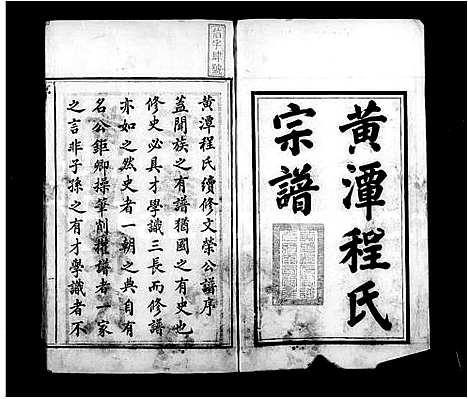 黄潭程氏
宗譜
黄潭程氏續修文榮公譜序
蓋聞族之有譜猶國之有史也
修史必具才學識三長而修譜
亦如之然史者一朝之典自有
名公鉅卿操筆削權譜者一家
之言非子孫之有才學識者不